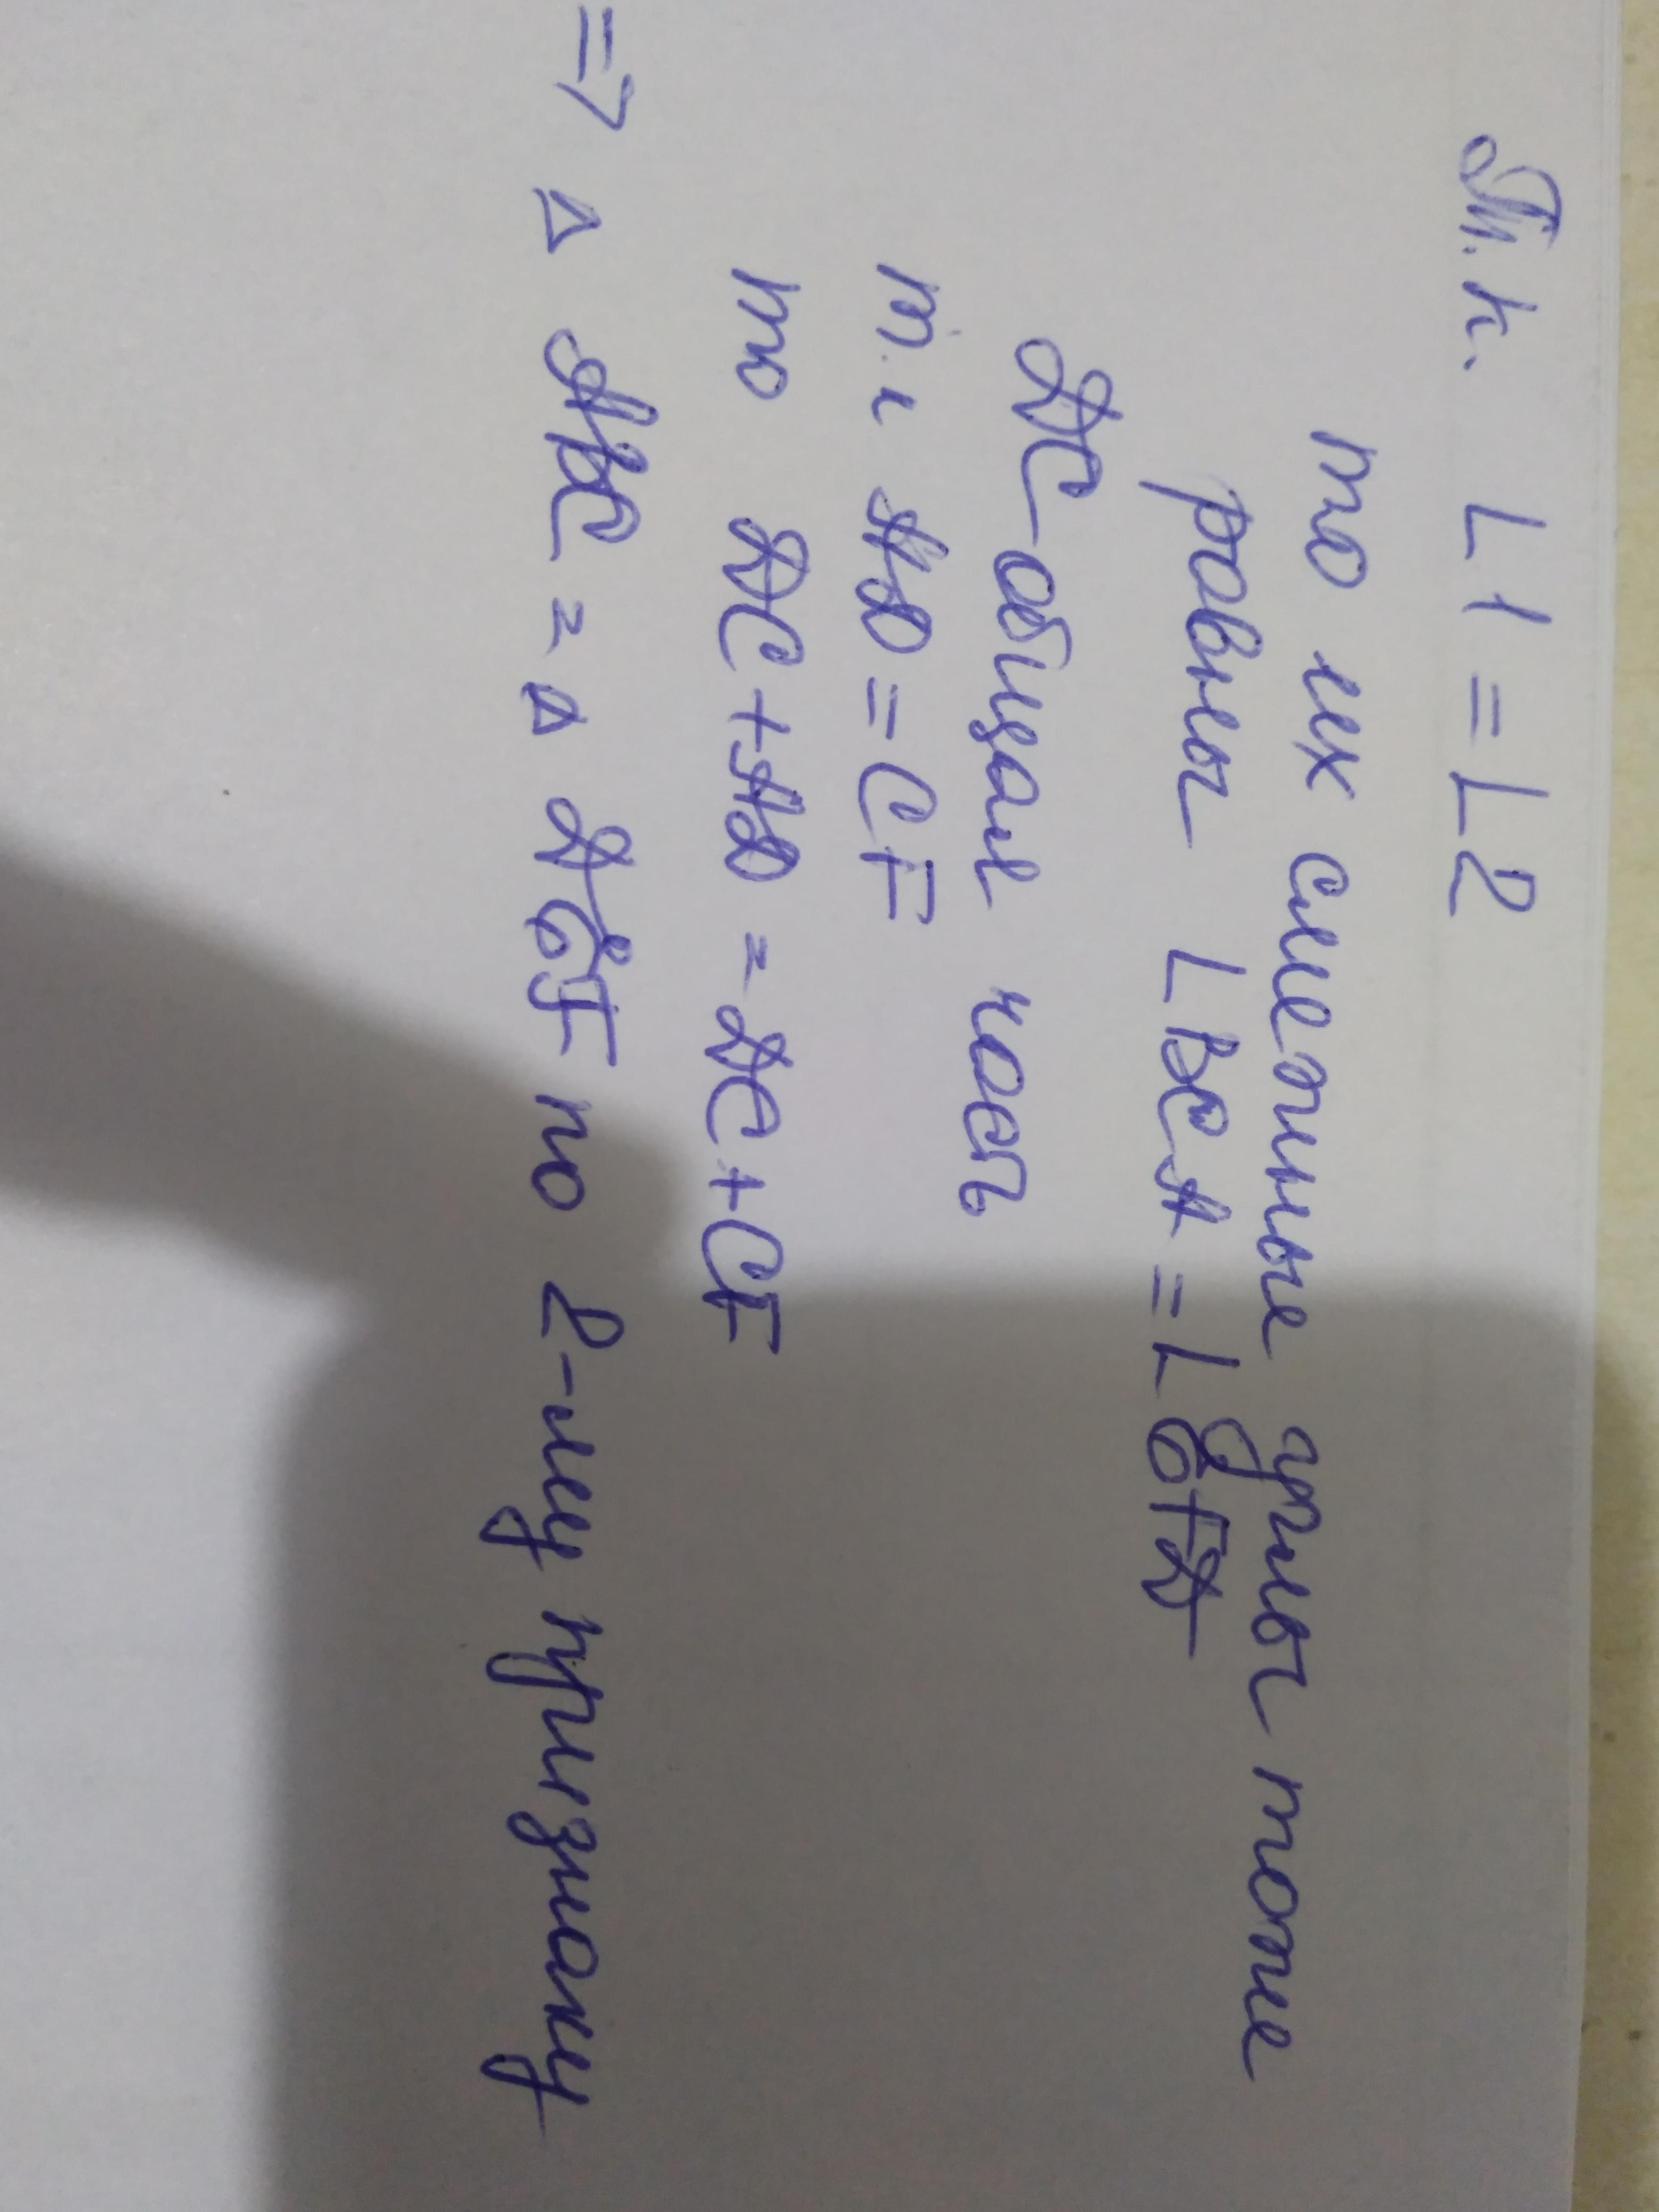 Т.к. ∠1 = ∠2
то их смежные углы тоже
равны ∠BCA = ∠EFD
DC - общая часть
т.к AD = CF
то DC + AD = DC + CF
=> Δ ABC = Δ DEF по 2-му признаку